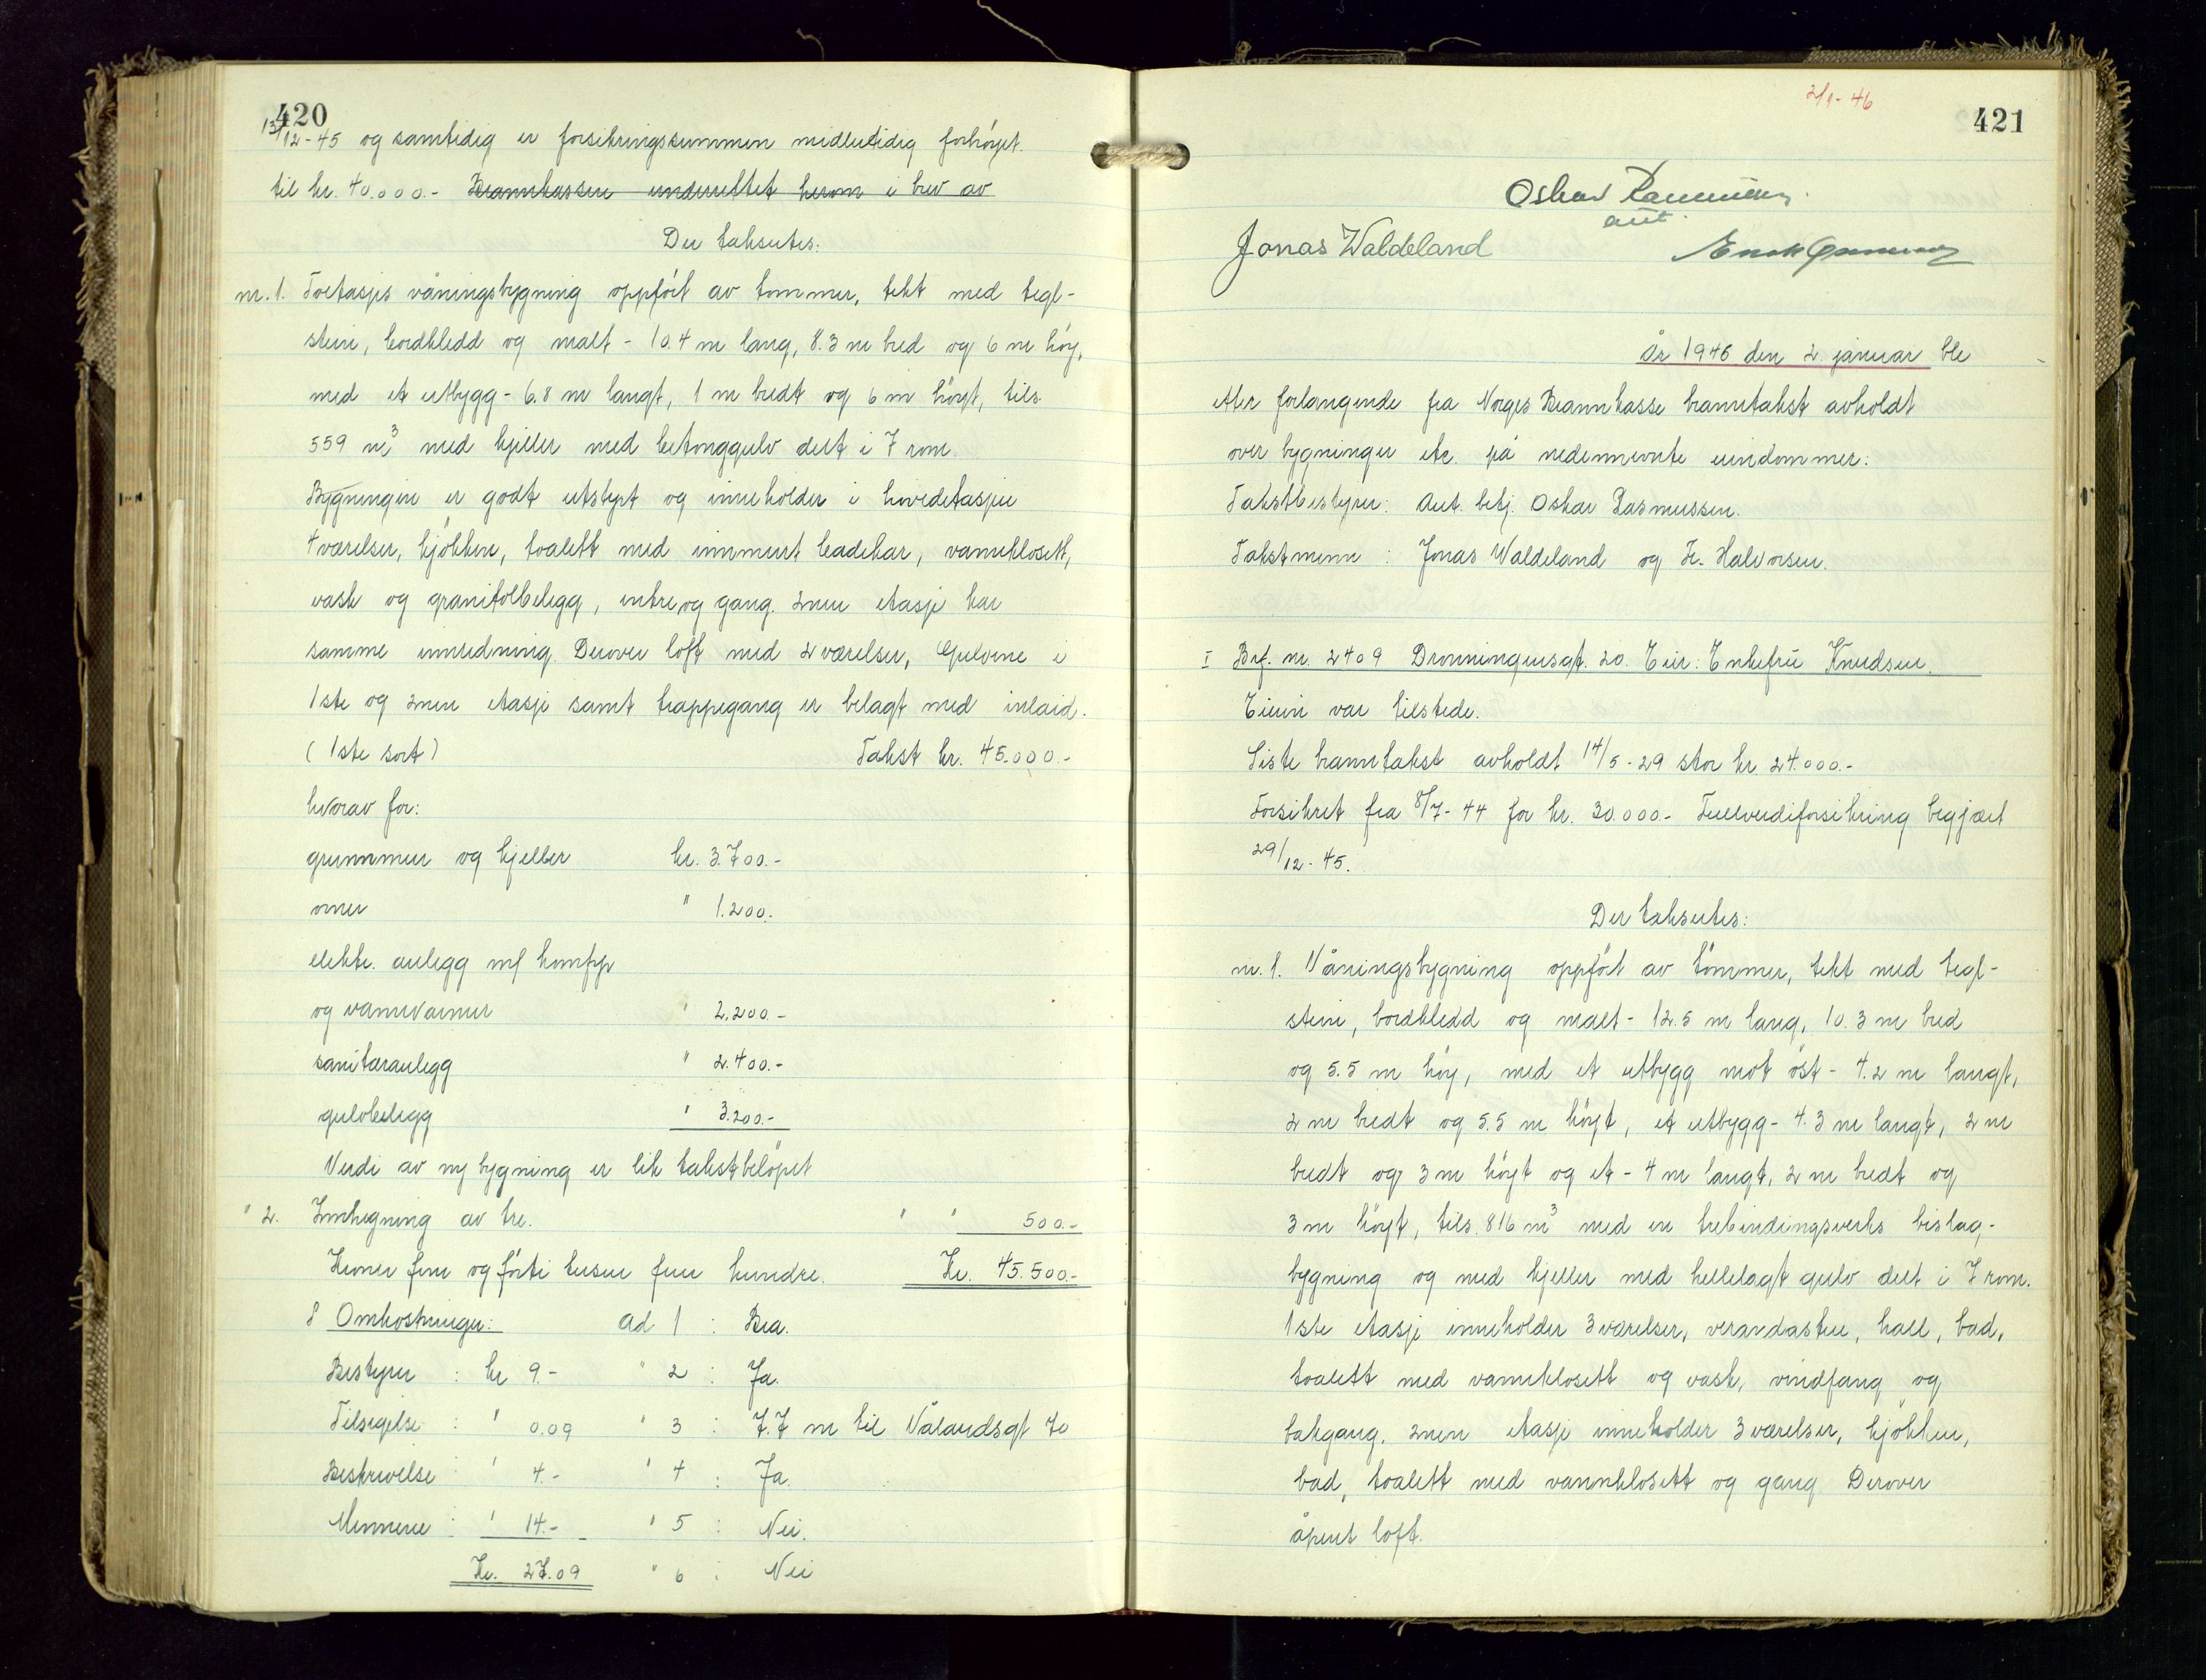 420
13/12-45 og samtidig er forsikringssummen midlertidig forhöyet
til kr. 40.000.- Brannkassen underrettet herom i brev av
Der takseertes:
nr. 1. Toetasjes våningsbygning oppfört av tömmer, tekt med tegl-
stein, bordkledd og malt - 10.4 m lang, 8.3 m bred og 6 m höy,
med et utbygg - 6.8 m langt, 1 m bredt og 6 m höyt, tils.
559 m³ med kjeller med betonggulv delt i 7 rom.
Bygningen er godt utstyrt og inneholder i hovedetasjen
4 værelser, kjökken, toalett med innmurt badekar, vannklosett,
vask og granitolbelegg, entre og gang. 2nen etasje har
samme innredning. Derover loft med 2 værelser, Gulvene i
1ste og 2nen etasje samt trappegang er belagt med inlaid.
(1ste sort) Takst kr. 45.000.-
hvorav for:
grunnmur og kjeller kr. 3.700.-
ovner " 1.200.
elektr. anlegg m/ komfyr
og vannvarmer " 2.200.-
sanitæranlegg " 2.400.-
gulvbelegg " 3.200.-
Verdi av ny bygning er lik takstbelöpet
" 2. Innhegning av tre. " " 500.-
Kroner fem og förti tusen fem hundre. Kr. 45.500.-
Omkostninger: ad 1 : Bra.
Bestyrer : kr 9.- " 2 : Ja.
Tilsigelse : " 0.09 " 3 : 7.7 m til Vålandsgt 40
Beskrivelse : " 4.- " 4 : Ja.
Mennene : " 14.- " 5 : Nei.
Kr. 27.09 " 6 : Nei
2/1-46
421
Oskar Rasmussen
aut.
Jonas Waldeland
År 1946 den 2. januar ble
etter forlangende fra Norges Brannkasse branntakst avholdt
over bygninger etc. på nedennevnte eiendommer:
Takstbestyrer: Aut. betj. Oskar Rasmussen.
Takstmenn : Jonas Waldeland og Kr. Halvorsen.
I Brf. nr. 2409 Dronningensgt. 20. Eier: Enkefru Knudsen.
Eieren var tilstede.
Siste branntakst avholdt 14/5-29 stor kr. 24.000.-
Forsikret fra 8/7-44 for kr. 30.000.- Fullverdiforsikring begjært
29/12-45.
Der takseertes:
nr. 1. Våningsbygning oppfört av tömmer, tekt med tegl-
stein, bordkledd og malt - 12.5 m lang, 10.3 m bred
og 5.5 m höy, med et utbygg mot öst - 4.2 m langt,
2 m bredt og 5.5 m höyt, et utbygg - 4.3 m langt, 2 m
bredt og 3 m höyt og et - 4 m langt, 2 m bredt og
3 m höyt, tils. 816 m³ med en trebindingsverks bislag-
bygning og med kjeller med hellelagt gulv delt i 7 rom.
1ste etasje inneholder 3 værelser, verandastue, hall, bad,
toalett med vannklosett og vask, vindfang og
bakgang. 2nen etasje inneholder 3 værelser, kjökken,
bad, toalett med vannklosett og gang. Derover
åpent loft.